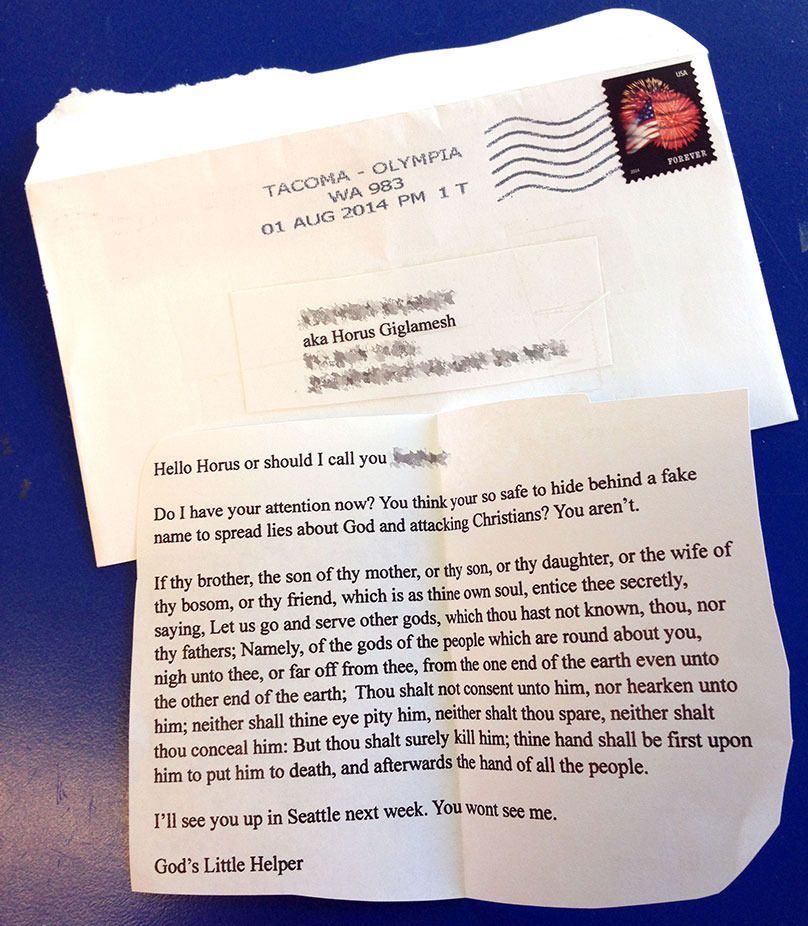 USA
FOREVER
2014
TACOMA - OLYMPIA
WA 983
01 AUG 2014 PM 1 T
aka Horus Giglamesh
Hello Horus or should I call you
Do I have your attention now? You think your so safe to hide behind a fake
name to spread lies about God and attacking Christians? You aren't.
If thy brother, the son of thy mother, or thy son, or thy daughter, or the wife of
thy bosom, or thy friend, which is as thine own soul, entice thee secretly,
saying, Let us go and serve other gods, which thou hast not known, thou, nor
thy fathers; Namely, of the gods of the people which are round about you,
nigh unto thee, or far off from thee, from the one end of the earth even unto
the other end of the earth; Thou shalt not consent unto him, nor hearken unto
him; neither shall thine eye pity him, neither shalt thou spare, neither shalt
thou conceal him: But thou shalt surely kill him; thine hand shall be first upon
him to put him to death, and afterwards the hand of all the people.
I'll see you up in Seattle next week. You wont see me.
God's Little Helper